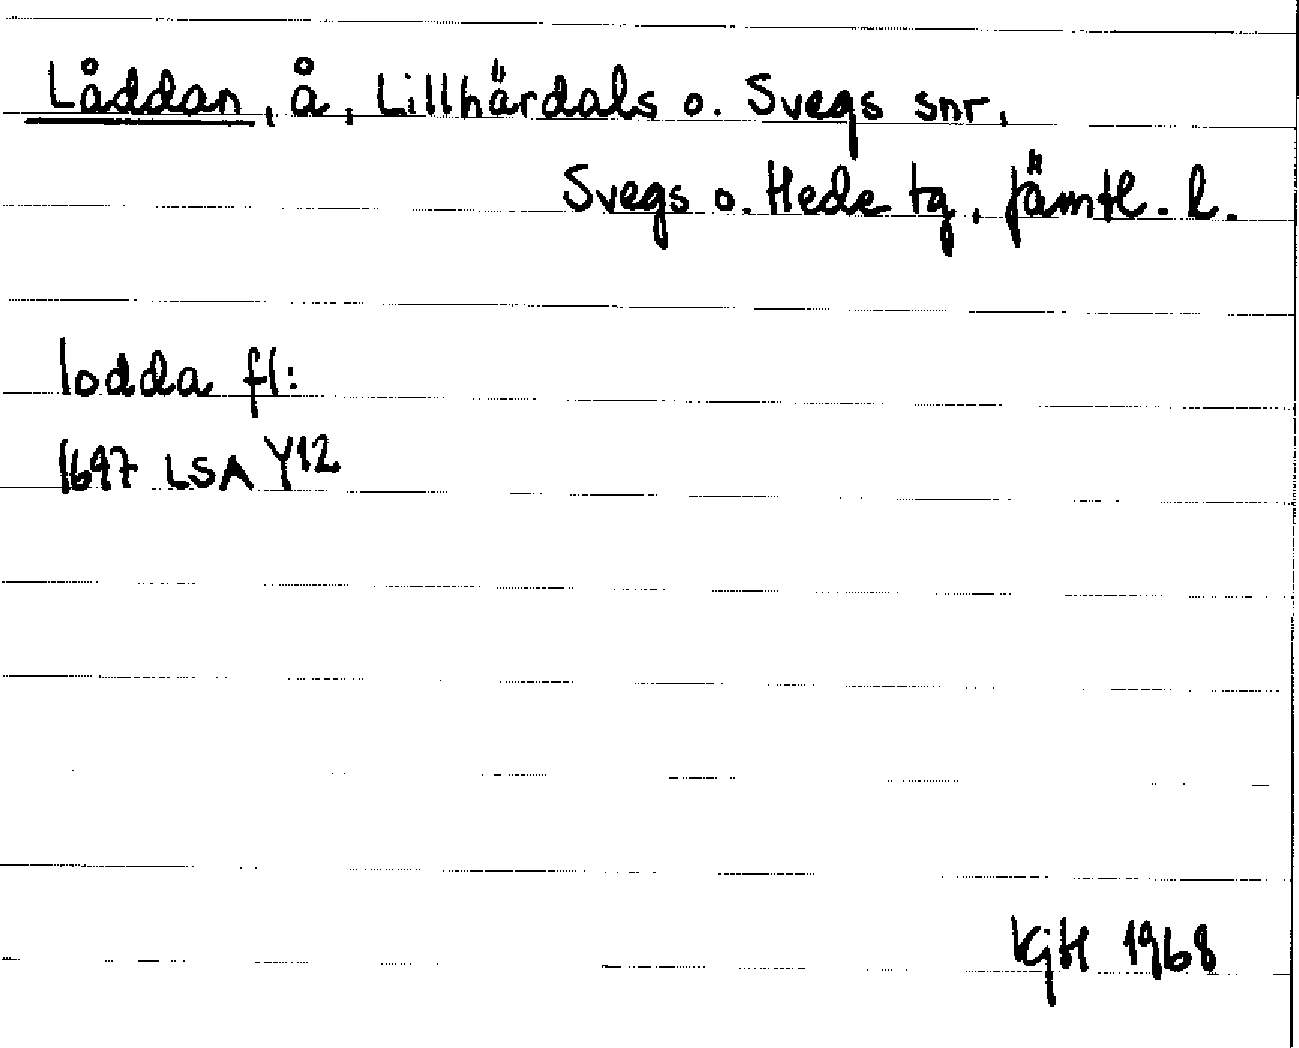 Låddan, å, Lillhärdals o. Svegs snr,
Svegs o. Hede tg, Jämtl. l.
lodda fl:
1697 LSA Y12
KjH 1968